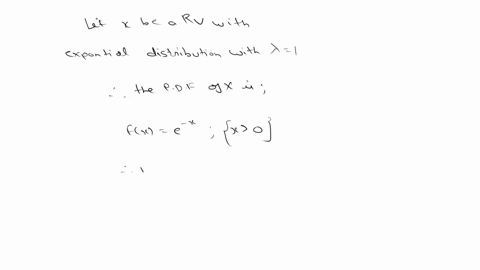 Let x be a RV with
expontial distribution with λ=1
∴ the P.D.F of X is;
f(x) = e^{-x} ; {x>0}
∴